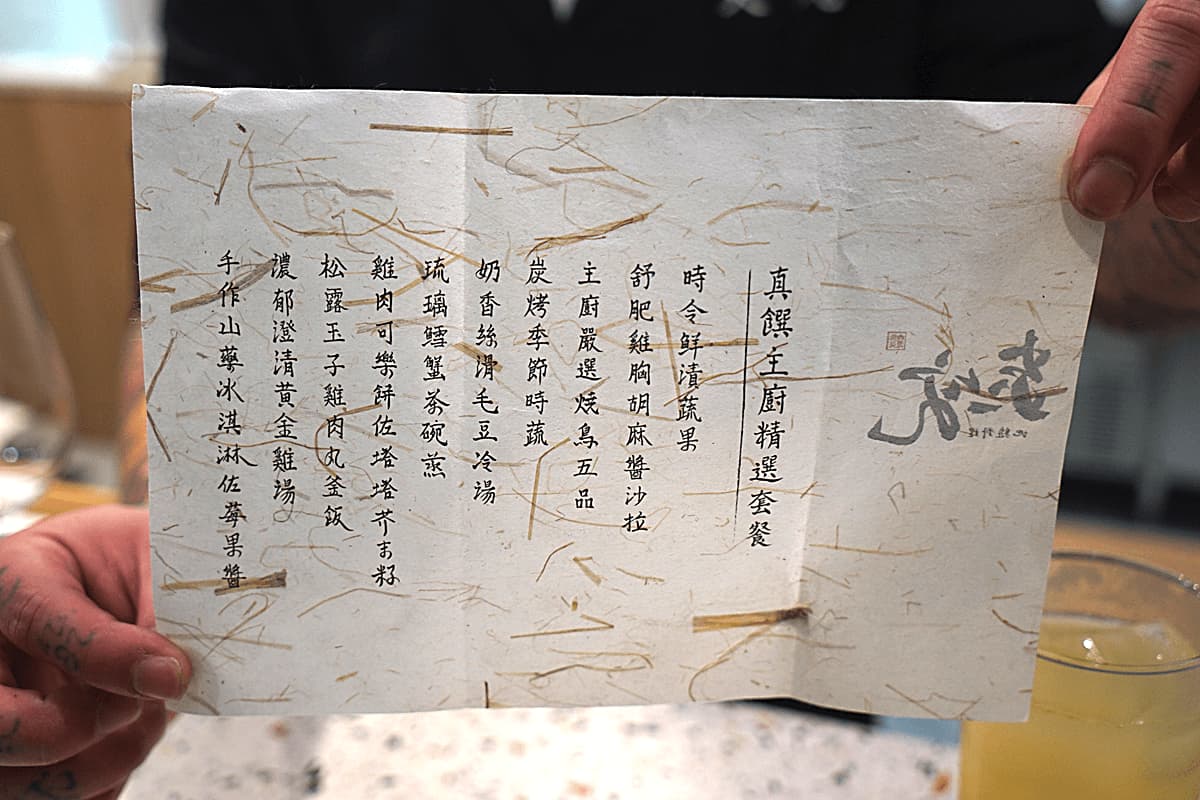 真饌主廚精選套餐
時令鮮漬蔬果
舒肥雞胸胡麻醬沙拉
主廚嚴選燒鳥五品
炭烤季節時蔬
奶香絲滑毛豆冷湯
琉璃鱈蟹茶碗蒸
雞肉可樂餅佐塔塔芥末籽
松露玉子雞肉丸釜飯
濃郁澄清黃金雞湯
手作山藥冰淇淋佐莓果醬